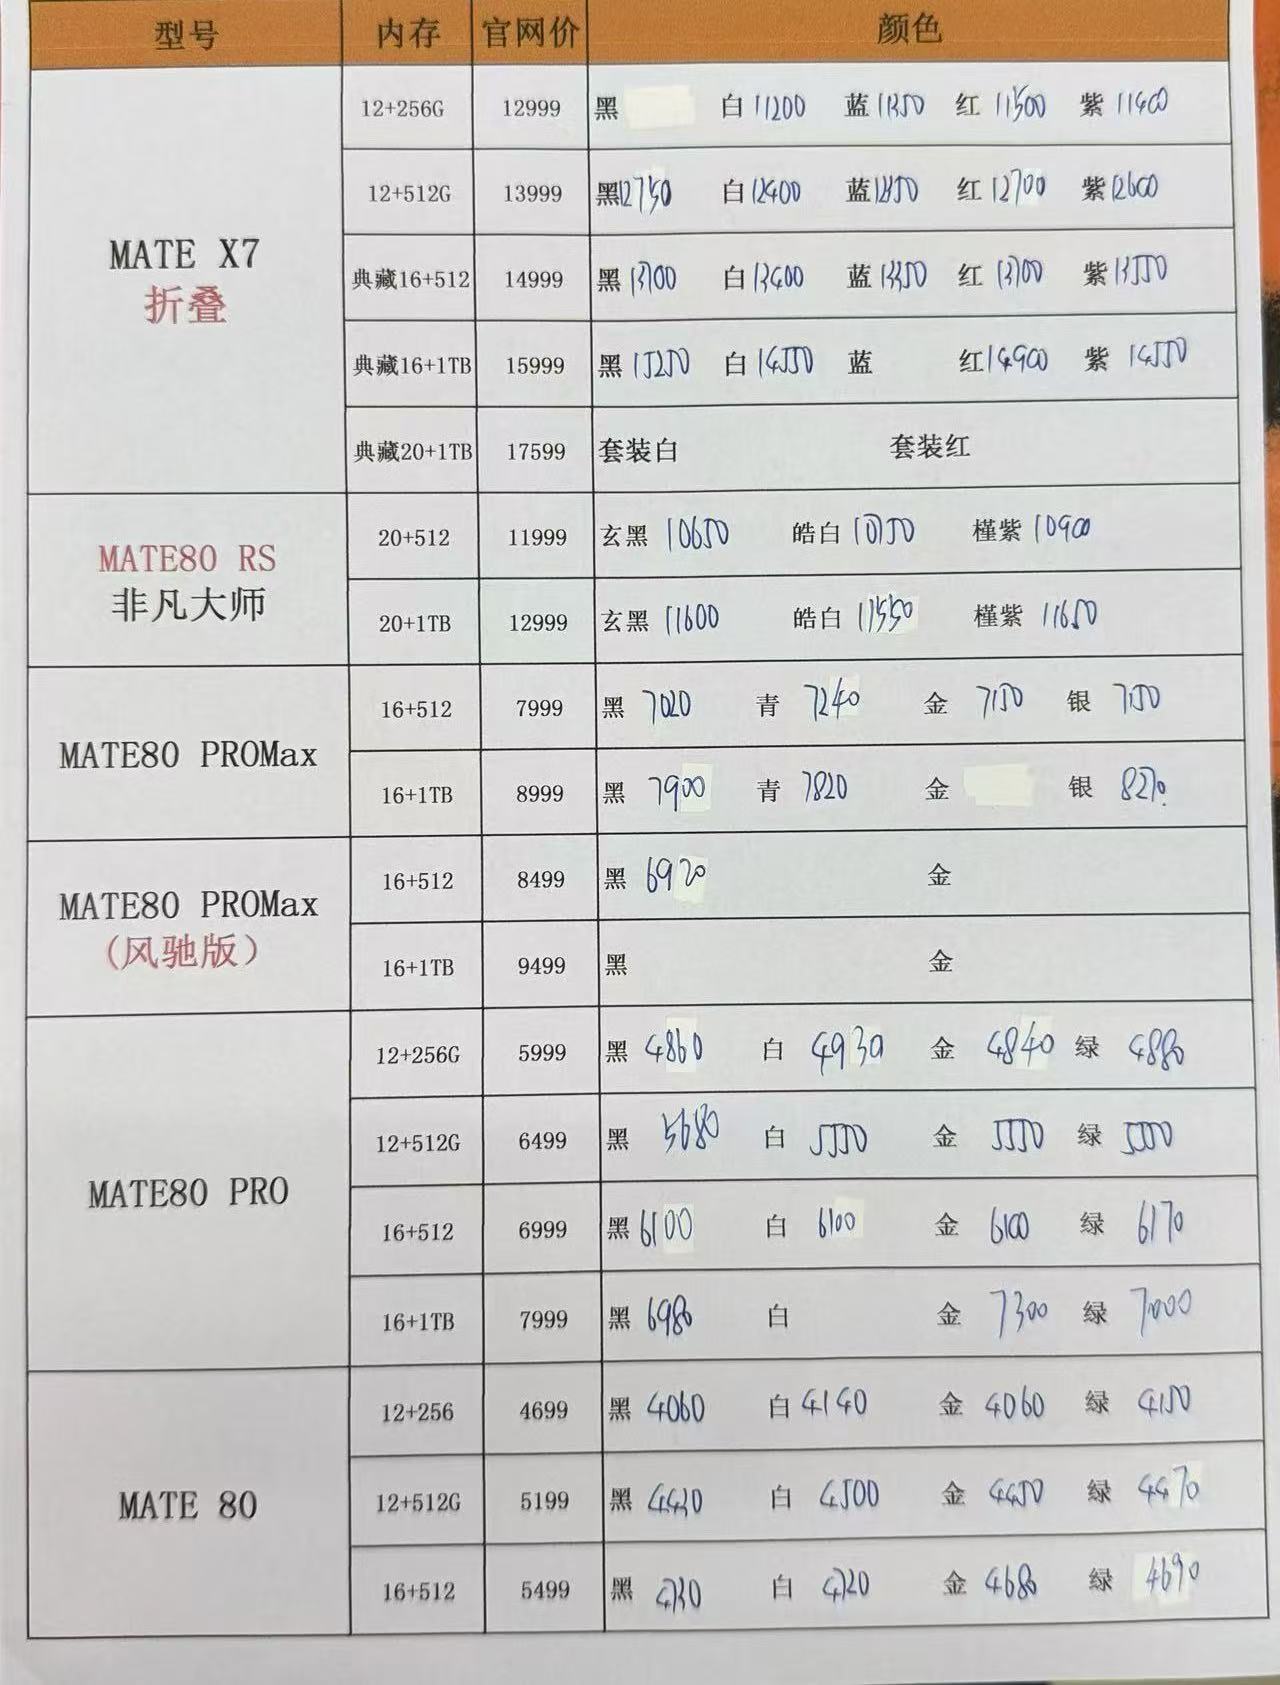 型号 内存 官网价 颜色
MATE X7
折叠
12+256G 12999 黑 白11200 蓝11350 红11500 紫11400
12+512G 13999 黑12750 白12400 蓝 红12700 紫12600
典藏16+512 14999 黑13700 白13400 蓝13350 红13700 紫13550
典藏16+1TB 15999 黑15250 白14550 蓝 红14900 紫14550
典藏20+1TB 17599 套装白 套装红
MATE80 RS
非凡大师
20+512 11999 玄黑 10650 皓白 槿紫 10900
20+1TB 12999 玄黑 11600 皓白 11550 槿紫 11650
MATE80 PROMax
16+512 7999 黑 7020 青 7240 金 7150 银 7150
16+1TB 8999 黑 7900 青 7820 金 银 8270.
MATE80 PROMax
(风驰版）
16+512 8499 黑 6920 金
16+1TB 9499 黑 金
MATE80 PRO
12+256G 5999 黑 4860 白 4930 金 4840 绿 4880
12+512G 6499 黑 5680 白 5550 金 5550 绿
16+512 6999 黑 6100 白 6100 金 6100 绿 6170
16+1TB 7999 黑 6980 白 金 7300 绿 7000
MATE 80
12+256 4699 黑 4060 白 4140 金 4060 绿 4150
12+512G 5199 黑 4430 白 4500 金 4450 绿 4470
16+512 5499 黑 4730 白 4720 金 4680 绿 4690